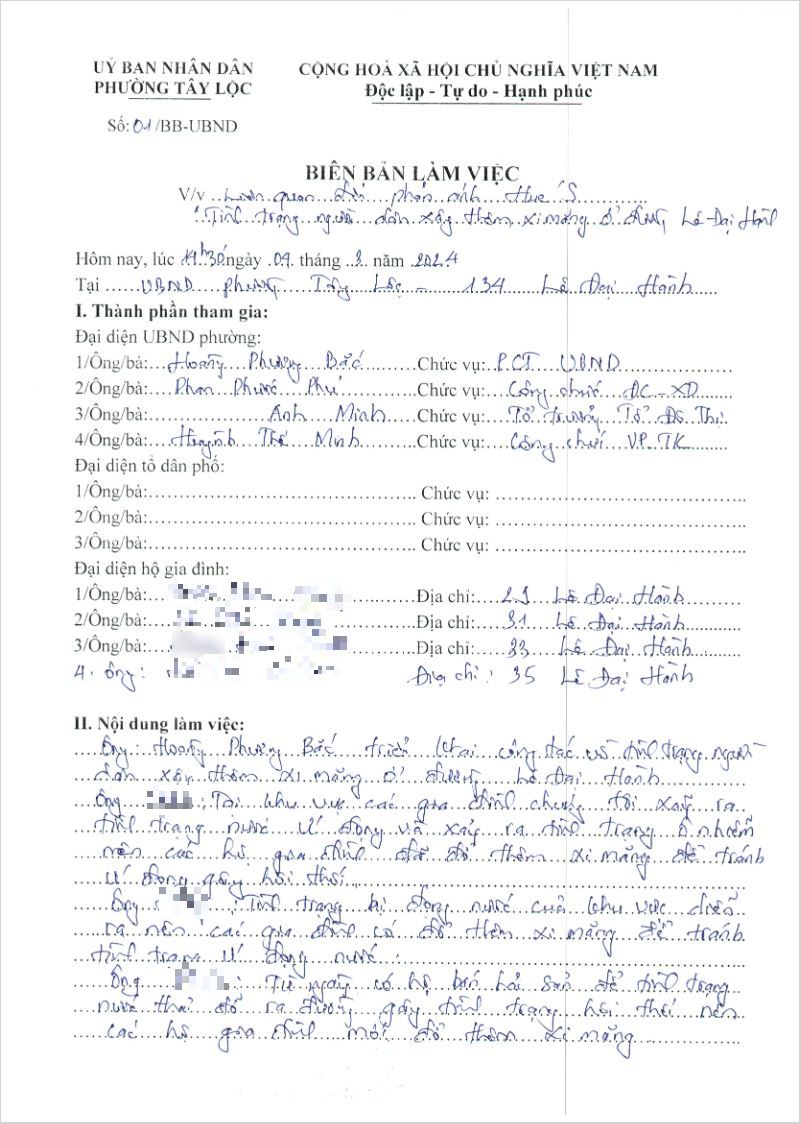 UỶ BAN NHÂN DÂN
PHƯỜNG TÂY LỘC
CỘNG HOÀ XÃ HỘI CHỦ NGHĨA VIỆT NAM
Độc lập - Tự do - Hạnh phúc
Số: 01/BB-UBND
BIÊN BẢN LÀM VIỆC
V/v Liên quan đến phản ánh Hue S
"Tình trạng người dân xây thêm xi măng ở đường Lê Đại Hành
Hôm nay, lúc ngày 09 tháng 3 năm 2024
Tại UBND phường Tây Lộc - 134 Lê Đại Hành
I. Thành phần tham gia:
Đại diện UBND phường:
1/Ông/bà: Hoàng Phương Bắc Chức vụ: P.CT UBND
2/Ông/bà: Phan Phước Phú Chức vụ: Công chức ĐC-XD
3/Ông/bà: Anh Minh Chức vụ: Tổ trưởng Tổ Đô Thị
4/Ông/bà: Huỳnh Thế Minh Chức vụ: Công chức VP.TK
Đại diện tổ dân phố:
1/Ông/bà: Chức vụ:
2/Ông/bà: Chức vụ:
3/Ông/bà: Chức vụ:
Đại diện hộ gia đình:
1/Ông/bà: Địa chỉ: 29 Lê Đại Hành
2/Ông/bà: Địa chỉ: 31 Lê Đại Hành
3/Ông/bà: Địa chỉ: 33 Lê Đại Hành
4. Ông: Địa chỉ: 35 Lê Đại Hành
II. Nội dung làm việc:
Ông: Hoàng Phương Bắc triển khai công tác về tình trạng người
dân xây thêm xi măng ở đường Lê Đại Hành
Ông : Tại khu vực các gia đình chúng tôi xảy ra
tình trạng nước ứ đọng và xảy ra tình trạng ô nhiễm
nên các hộ gia đình đã đổ thêm xi măng để tránh
ứ đọng gây hôi thối
Ông : Tình trạng bị đọng nước của khu vực diễn
ra nên các gia đình có đổ thêm xi măng để tránh
tình trạng ứ đọng nước.
Ông : Từ ngày có hộ bán hải sản để tình trạng
nước thải đổ ra đường gây tình trạng hôi thối nên
các hộ gia đình mới đổ thêm xi măng